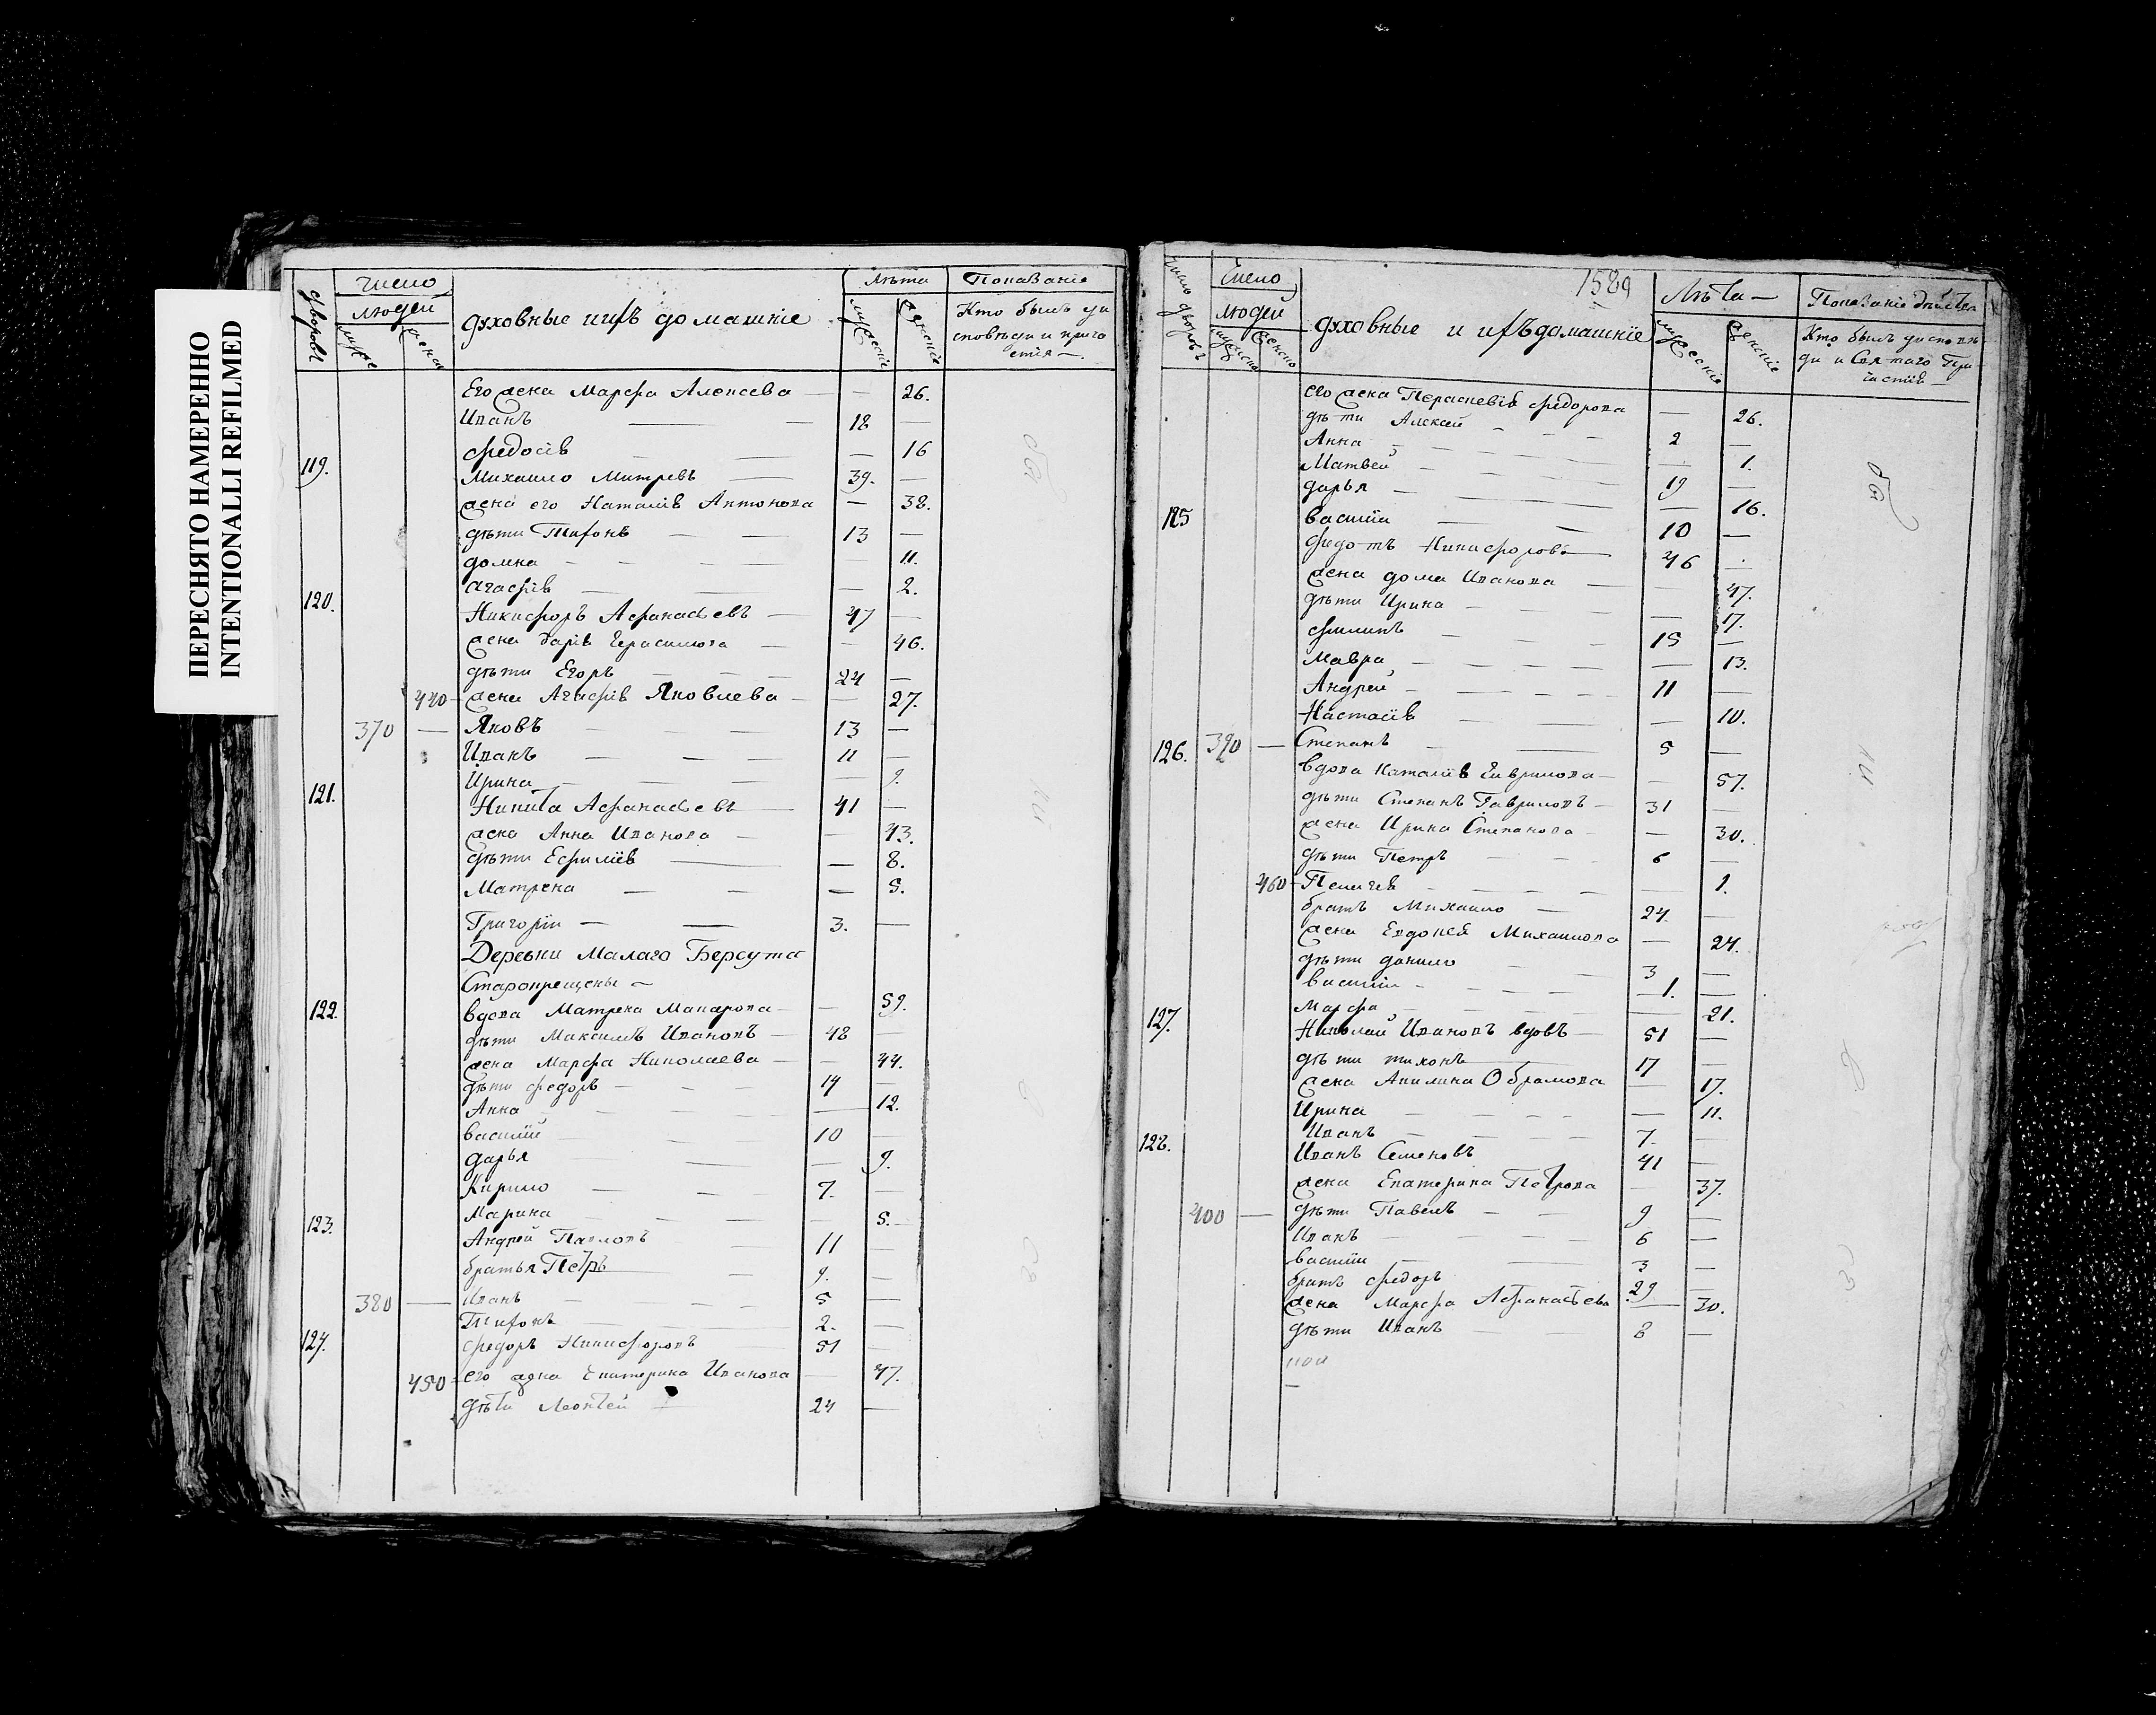 ПЕРЕСНЯТО НАМЕРЕННО
INTENTIONALLI REFILMED
дворовъ
число
людей
духовные ихъ домашнiе
лѣта
Показанiе
Кто былъ у и
споведи и прича
стiя
Его жена Марфа Алексева — 26.
Иванъ 18 —
Федосiя — 16
119. Михаило Митревъ 39. —
жена его Наталiя Антонова — 38.
дѣти Тихонъ 13 —
домна — 11.
Агафiя — 2.
120. Никифоръ Афанасьевъ 47 —
жена дарiя Герасимова — 46.
дѣти Егоръ 24 —
440 жена Агафiя Яковлева — 27.
370 — Яковъ 13 —
Иванъ 11 —
Ирина — 9.
121. Никита Афанасьевъ 41 —
жена Анна Иванова — 43.
дѣти Ефимiя — 8.
Матрена — 5.
Григорiи 3. —
Деревни Малаго Берсута
Старокрещены
122. вдова Матрена Макарова — 59.
дѣти Максимъ Ивановъ 48 —
жена Марфа Николаева — 44.
дѣти федоръ 14 —
Анна — 12.
василiй 10 —
дарья — 9.
Кирило 7. —
Марина — 5.
123. Андрей Павловъ 11 —
братья Петръ 9. —
380 — Иванъ 5 —
Тихонъ 2. —
124. федоръ Никифоровъ 51 —
450 его жена Екатерина Иванова — 47.
дѣти Леонтей 24 —
число дворовъ
Число
людей
духовные и ихъ домашнiе
1589
Лѣта
Показанiе дѣйства
Кто былъ у исповѣ
ди и Святаго При
частiя
его жена Параскевiя федорова — 26.
дѣти Алексей 2 —
Анна — 1.
Матвей 19 —
дарья — 16.
василiи 10 —
125 федотъ Никифоровъ 46
жена дома Иванова — 47.
дѣти Ирина — 17.
филипъ 15 —
Мавра — 13.
Андрей 11 —
Настасiя — 10.
390 — Степанъ 5 —
126. вдова Наталiя Гаврилова — 57.
дѣти Степанъ Гавриловъ 31 —
жена Ирина Степанова — 30.
дѣти Петръ 6 —
460 Пелагея — 1.
братъ Михаило 24. —
жена Евдокея Михаилова — 24.
дѣти данило 3 —
василiи 1.
Марфа — 21.
127. Николай Ивановъ вдовъ 51 —
дѣти тихонъ 17 —
жена Акилина Обрамова — 17.
Ирина — 11.
Иванъ 7. —
128. Иванъ Семеновъ 41 —
жена Екатерина Петрова — 37.
400 — дѣти Павелъ 9 —
Иванъ 6 —
василiи 3 —
братъ федоръ 29 —
жена Марфа Афанасьева — 30.
дѣти Иванъ 8 —